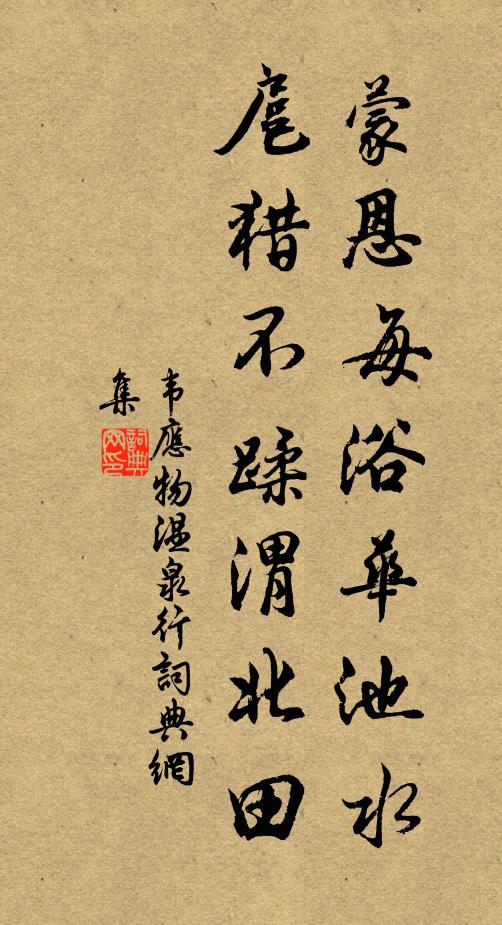 蒙恩每浴華池水
扈猎不蹂渭北田
韦應物温泉行詞典網
集
詞典
网印